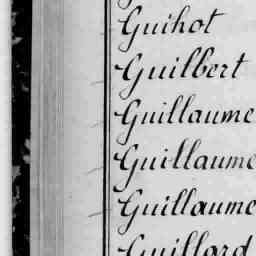 Guihot
Guilbert
Guillaume
Guillaume
Guillaume
Guillard